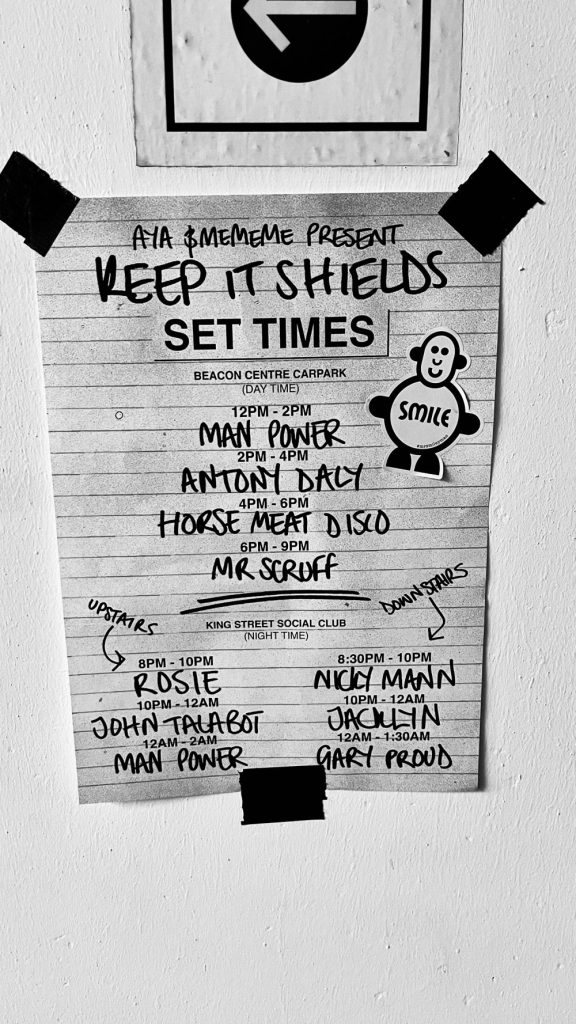 AYA $MEMEME PRESENT
KEEP IT SHIELDS
SET TIMES
BEACON CENTRE CARPARK
(DAY TIME)
12PM - 2PM
MAN POWER
2PM - 4PM
ANTONY DALY
4PM - 6PM
HORSE MEAT DISCO
6PM - 9PM
MR SCRUFF
SMILE
KING STREET SOCIAL CLUB
(NIGHT TIME)
UPSTAIRS
8PM - 10PM
ROSIE
10PM - 12AM
JOHN TALABOT
12AM - 2AM
MAN POWER
DOWNSTAIRS
8:30PM - 10PM
NICKY MANN
10PM - 12AM
JACKLYN
12AM - 1:30AM
GARY PROUD